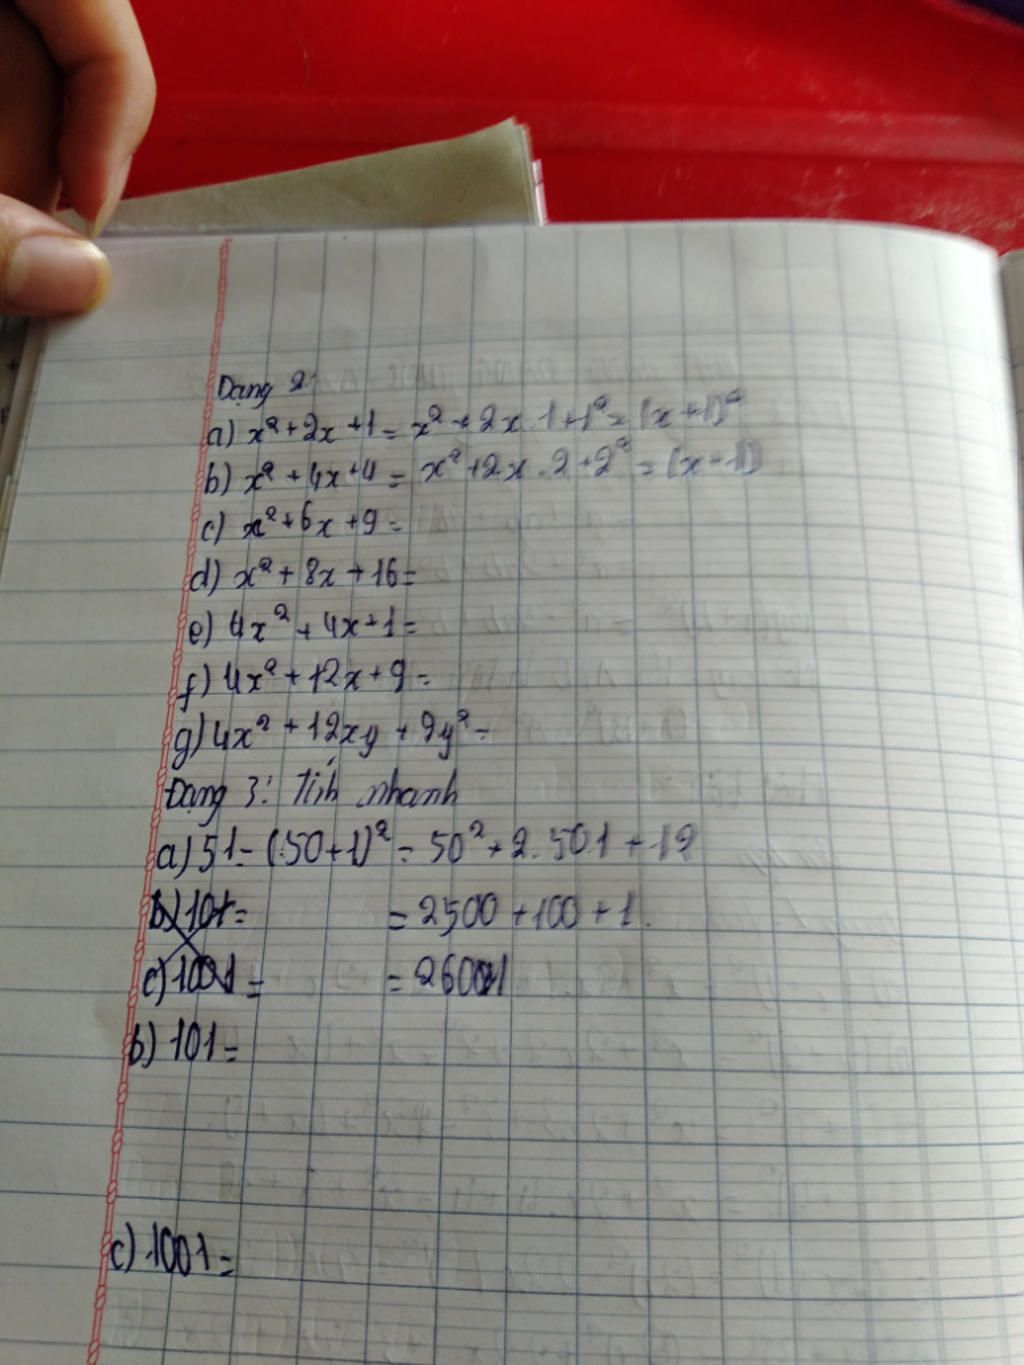 Dạng 2:
a) x² + 2x + 1 = x² + 2x . 1 + 1² = (x + 1)²
b) x² + 4x + 4 = x² + 2x . 2 + 2² = (x - 1)
c) x² + 6x + 9 =
d) x² + 8x + 16 =
e) 4x² + 4x + 1 =
f) 4x² + 12x + 9 =
g) 4x² + 12xy + 9y² =
Dạng 3: Tính nhanh
a) 51 = (50 + 1)² = 50² + 2.50.1 + 1²
b) 101 = = 2500 + 100 + 1.
c) 1001 = = 2601
b) 101 =
c) 1001 =